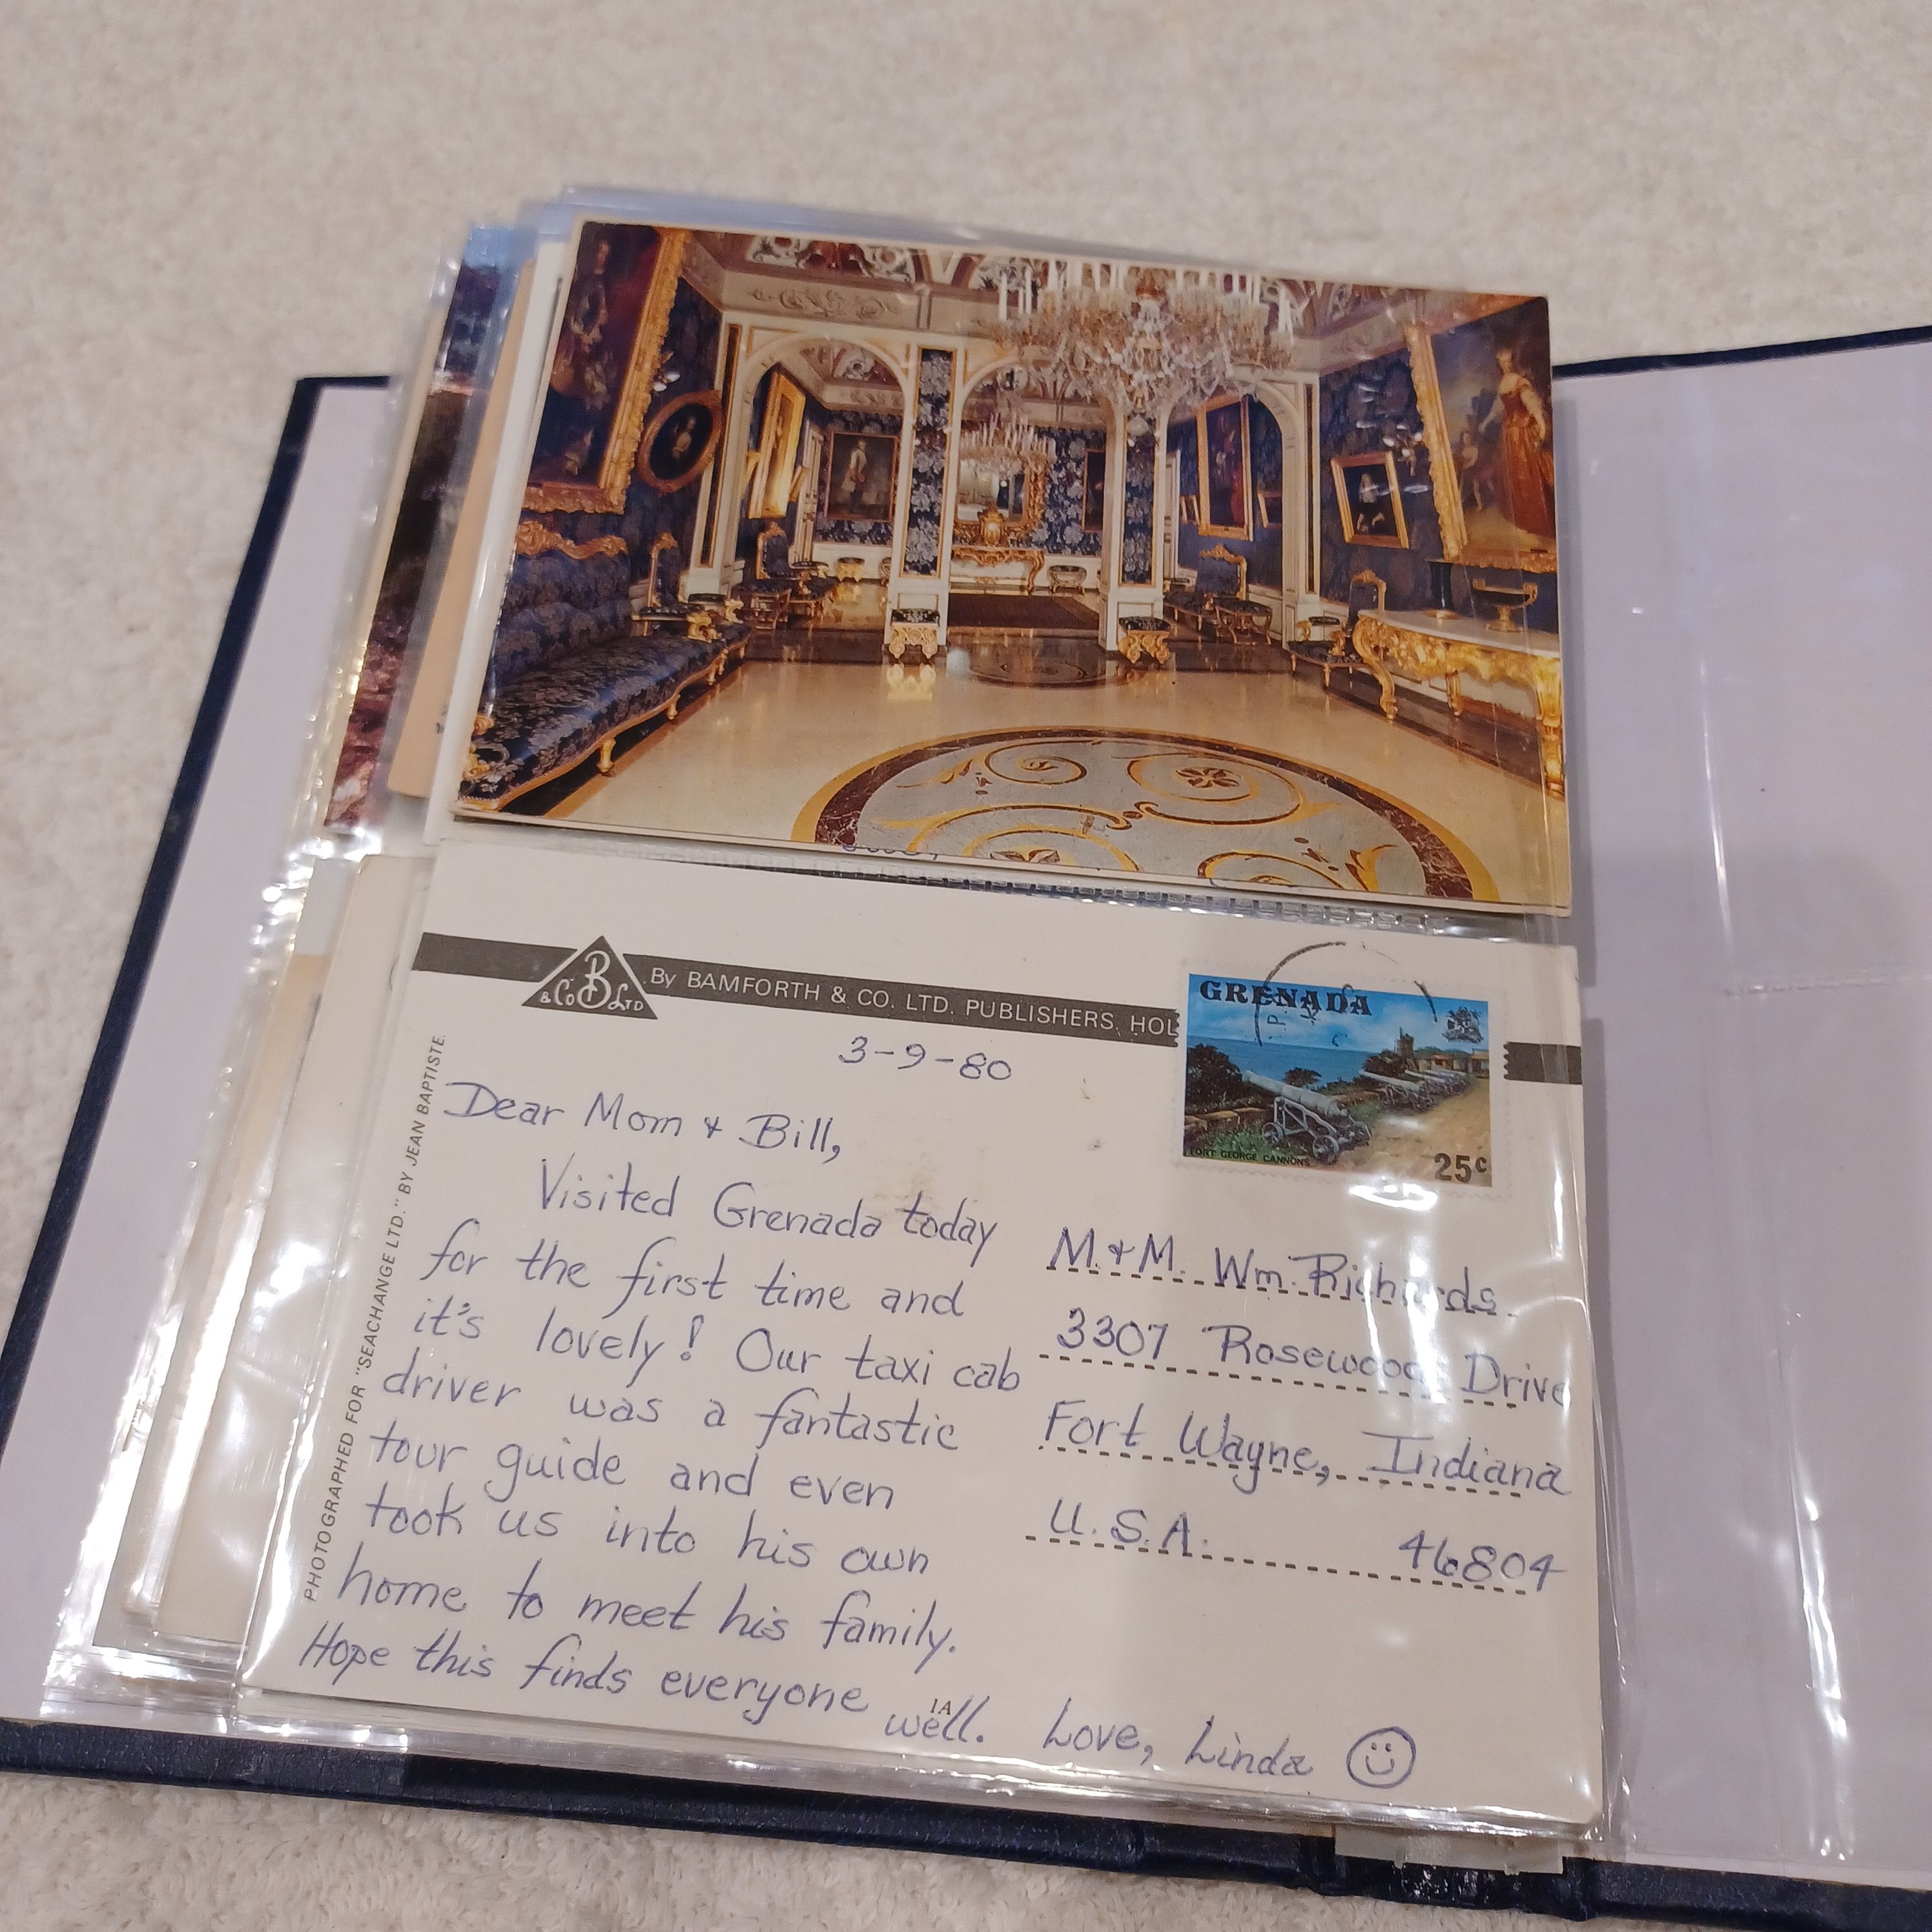 B
& Co LTD
By BAMFORTH & CO. LTD. PUBLISHERS, HOL
GRENADA
FORT GEORGE CANNONS
25c
PHOTOGRAPHED FOR "SEACHANGE LTD." BY JEAN BAPTISTE.
3-9-80
Dear Mom & Bill,
Visited Grenada today
for the first time and
it's lovely! Our taxi cab
driver was a fantastic
tour guide and even
took us into his own
home to meet his family.
Hope this finds everyone
well. Love, Linda
1A
M. & M. Wm. Richards
3307 Rosewood Drive
Fort Wayne, Indiana
U.S.A. 46804